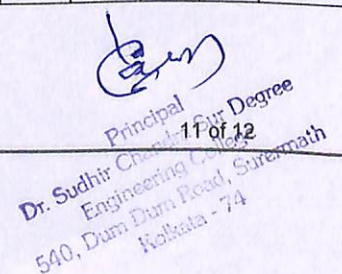 Principal
11 of 12
Dr. Sudhir Chandra Sur Degree
Engineering College
540, Dum Dum Road, Surermath
Kolkata - 74